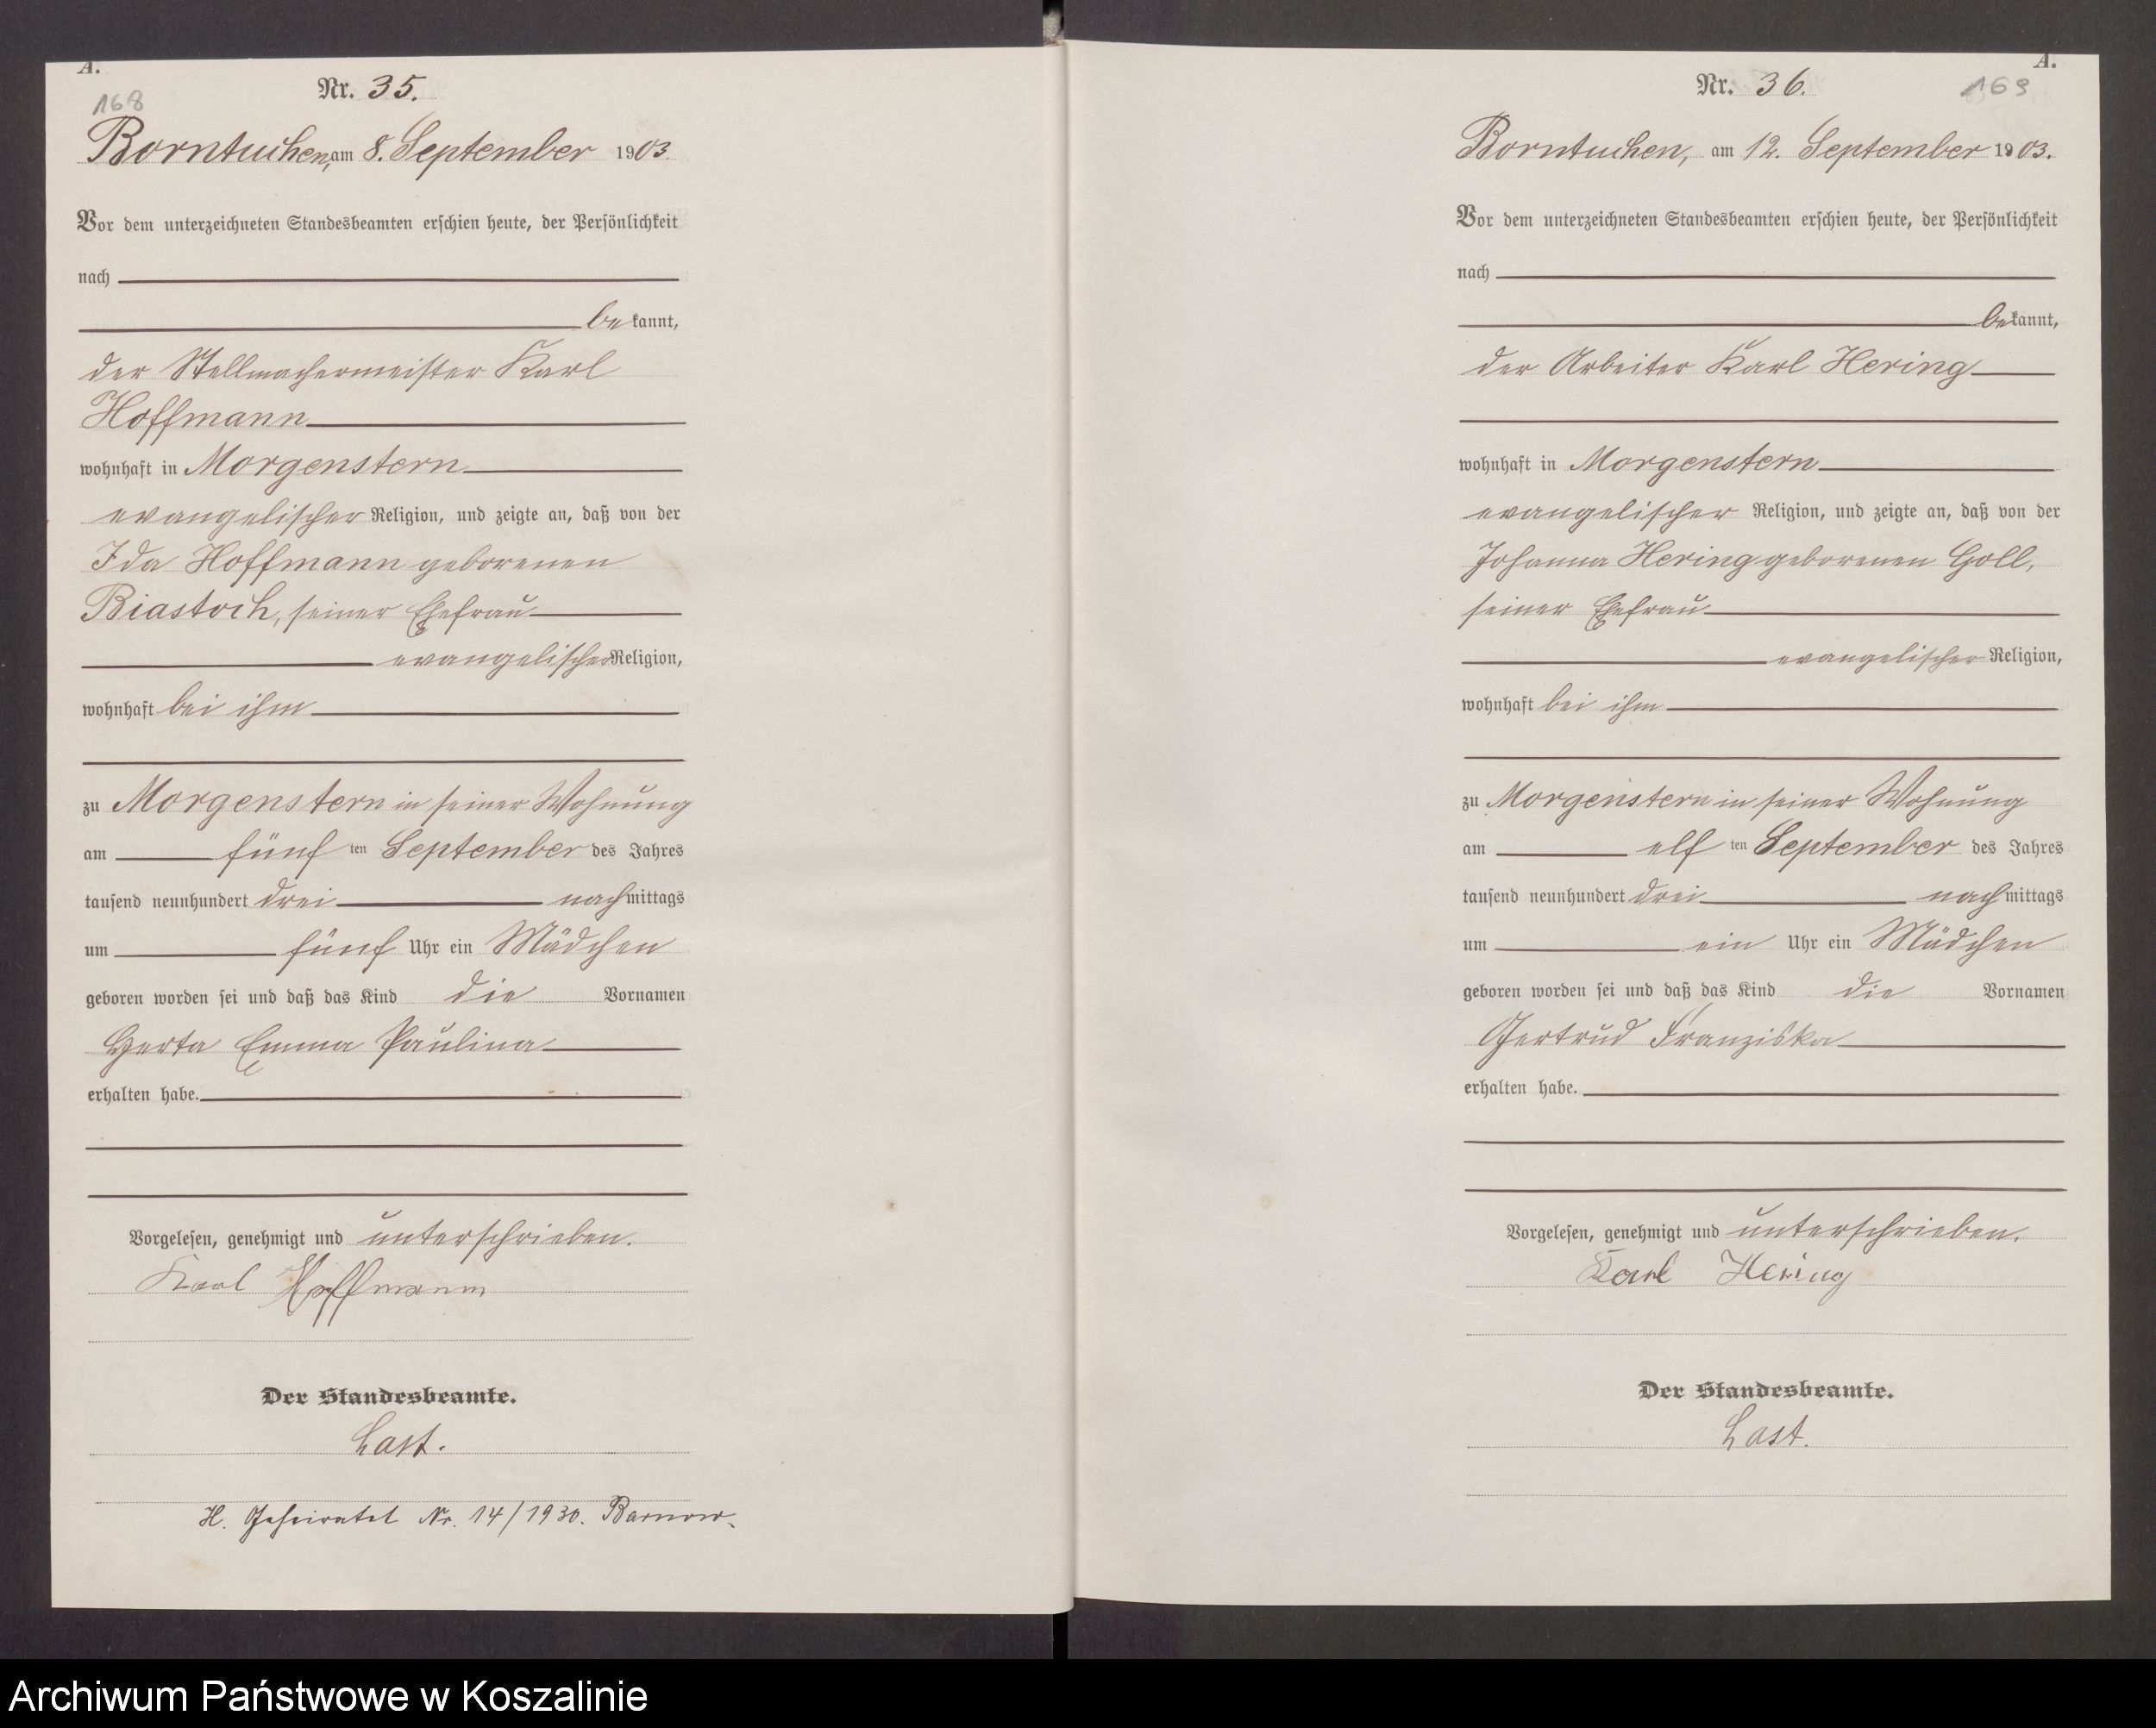 A.
168
Nr. 35.
Borntuchen, am 8. September 1903.
Vor dem unterzeichneten Standesbeamten erschien heute, der Persönlichkeit
nach
be kannt,
der Stellmachermeister Karl
Hoffmann
wohnhaft in Morgenstern
evangelischer Religion, und zeigte an, daß von der
Ida Hoffmann geborenen
Biastoch, seiner Ehefrau
evangelischer Religion,
wohnhaft bei ihm
zu Morgenstern in seiner Wohnung
am fünf ten September des Jahres
tausend neunhundert drei nach mittags
um fünf Uhr ein Mädchen
geboren worden sei und daß das Kind die Vornamen
Herta Emma Paulina
erhalten habe.
Vorgelesen, genehmigt und unterschrieben.
Karl Hoffmann
Der Standesbeamte.
Last.
H. Geheiratet Nr. 14/1930. Barnow.
A.
169
Nr. 36.
Borntuchen, am 12. September 1903.
Vor dem unterzeichneten Standesbeamten erschien heute, der Persönlichkeit
nach
be kannt,
der Arbeiter Karl Hering
wohnhaft in Morgenstern
evangelischer Religion, und zeigte an, daß von der
Johanna Hering geborenen Goll,
seiner Ehefrau
evangelischer Religion,
wohnhaft bei ihm
zu Morgenstern in seiner Wohnung
am elf ten September des Jahres
tausend neunhundert drei nach mittags
um ein Uhr ein Mädchen
geboren worden sei und daß das Kind die Vornamen
Gertrud Franziska
erhalten habe.
Vorgelesen, genehmigt und unterschrieben.
Karl Hering
Der Standesbeamte.
Last.
Archiwum Państwowe w Koszalinie